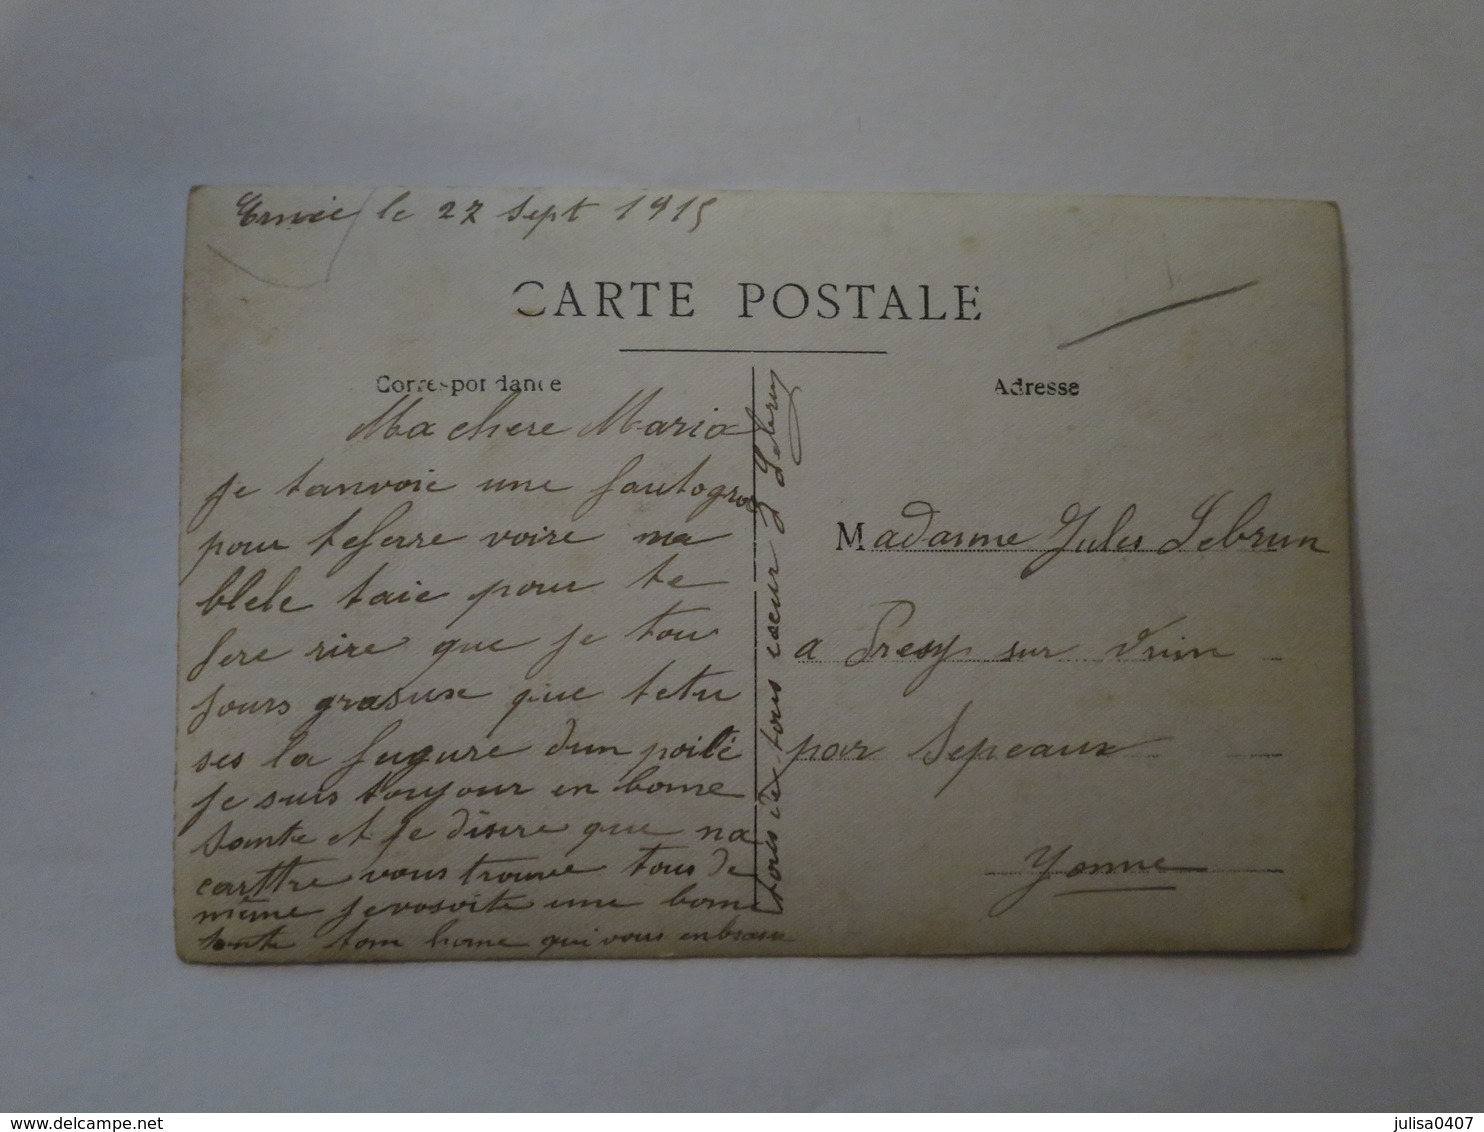 Envoie le 27 Sept 1915
CARTE POSTALE
Correspondance
Adresse
Ma chere Maria
je tanvoie une fautogra
pour teferre voire ma
blele taie pour te
fere rire que je tou
jours grasuse que tetu
ses la fugure dun poilé
je suis toujour en bonne
sante et je disire que na
carttre vous trouve tous de
même je vosoite une bonne
sante ton home qui vous enbrasse
tous de tous coeur J Lebrun
Madamme Jules Lebrun
a Presy sur Vrin
par Sepeaux
Yonne
delcampe.net
julisa0407